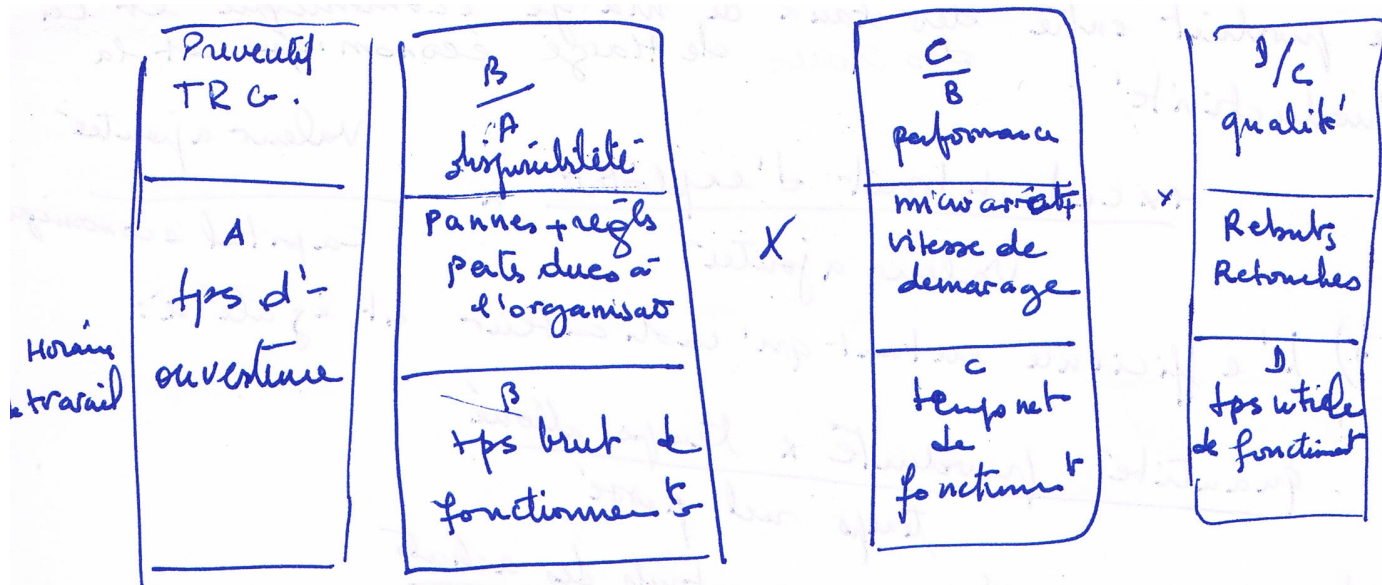 Preventif
TRG.
A
tps d'-
ouverture
Horaire
travail
B
A
disponibilité
Pannes + regls
perts dues à
l'organisat
B
tps brut de
fonctionnemt
X
C
B
performance
micro arrêt +
vitesse de
demarage
C
temps net
de
fonctionnt
x
D/C
qualité
Rebuts
Retouches
D
tps utile
de fonctionnt